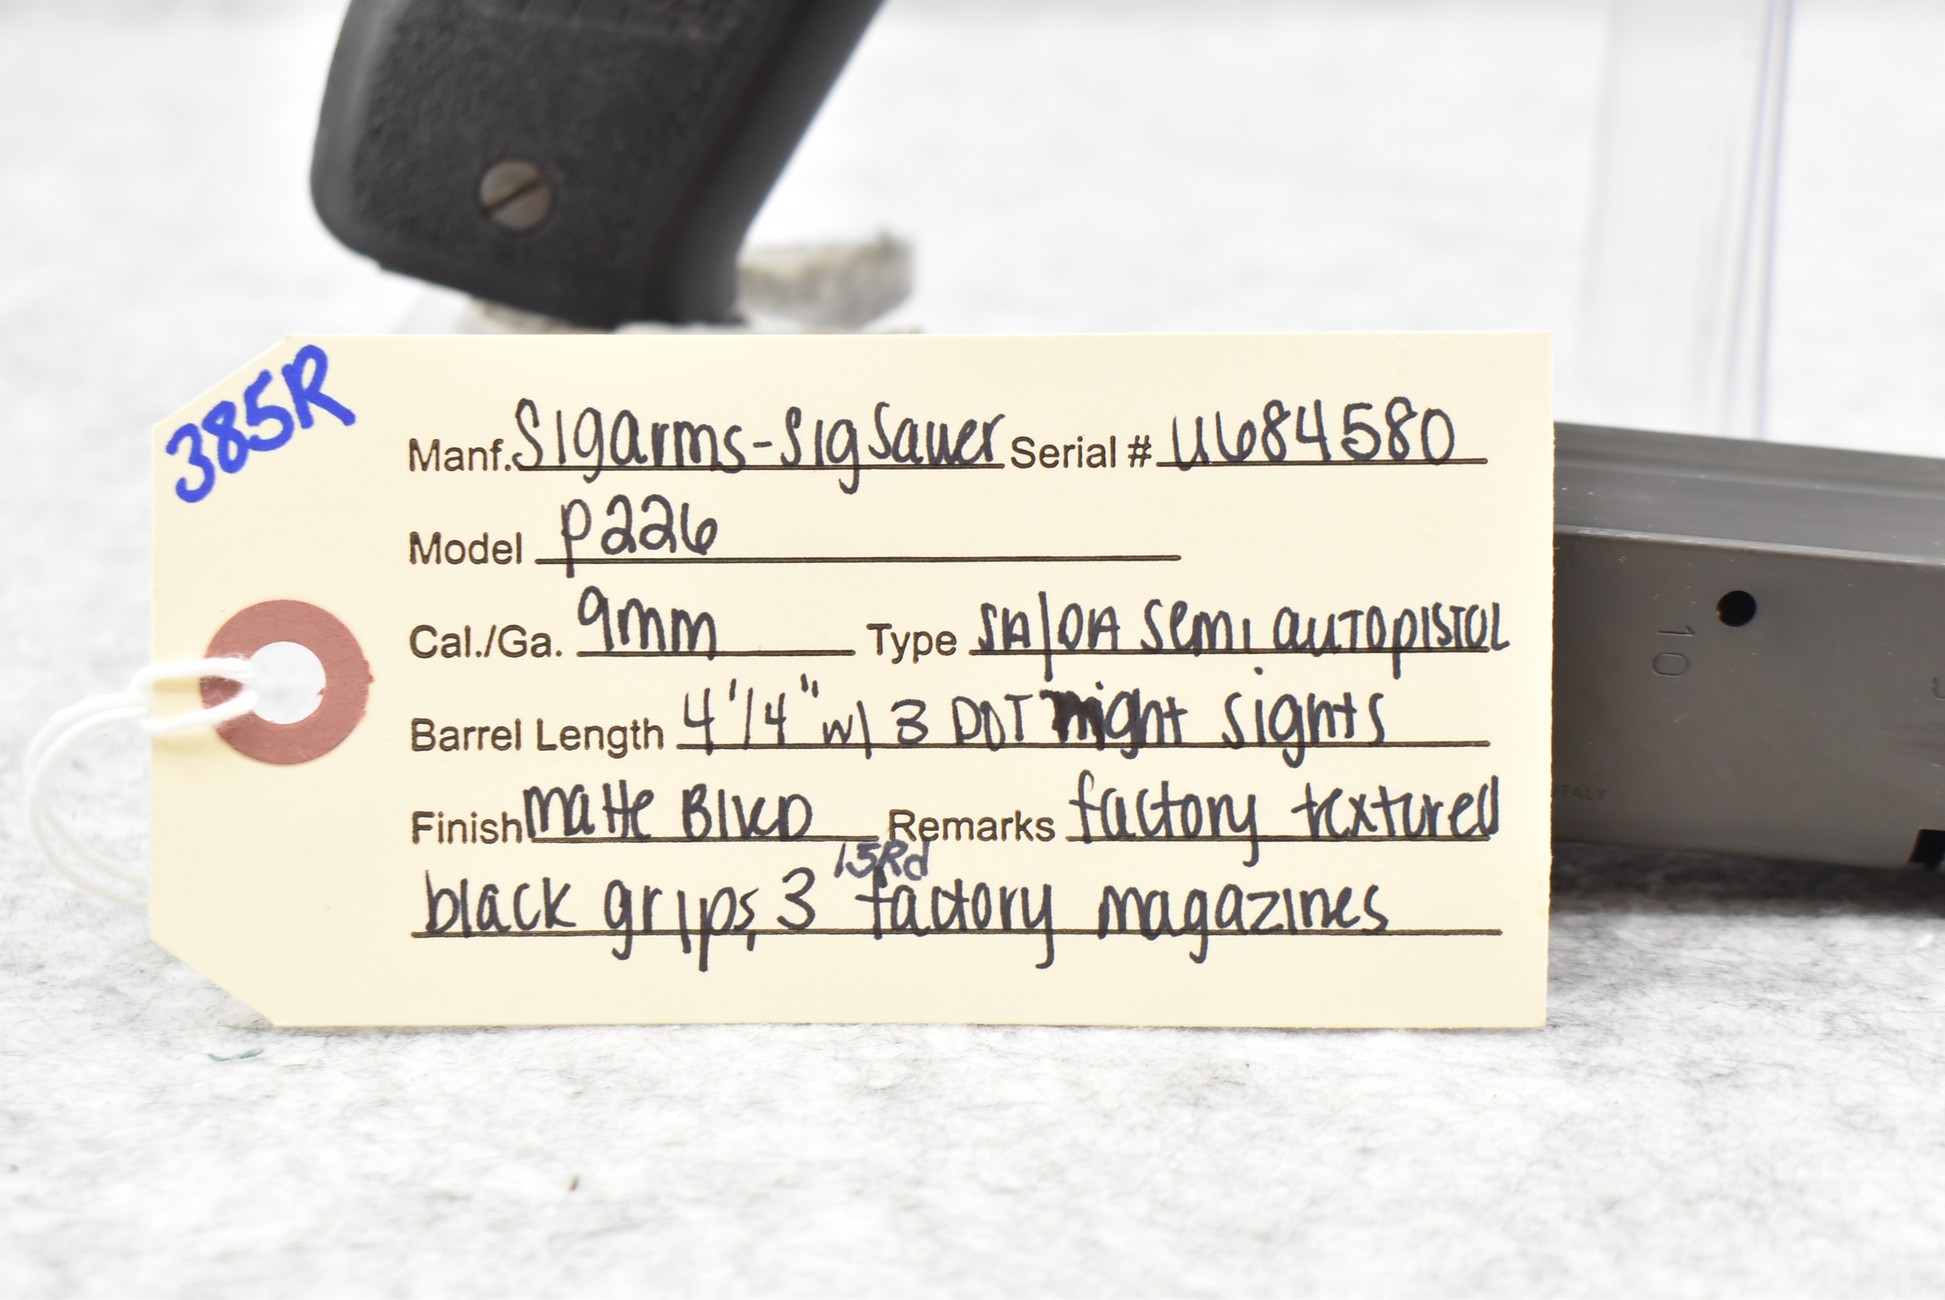 385R
Manf. Sigarms-Sig Sauer Serial # U684580
Model P226
Cal./Ga. 9mm Type SA/DA Semi autopistol
Barrel Length 4 1/4" w/ 3 DOT night sights
Finish Matte Blued Remarks factory textured
15Rd
black grips, 3 factory magazines
10
ITALY